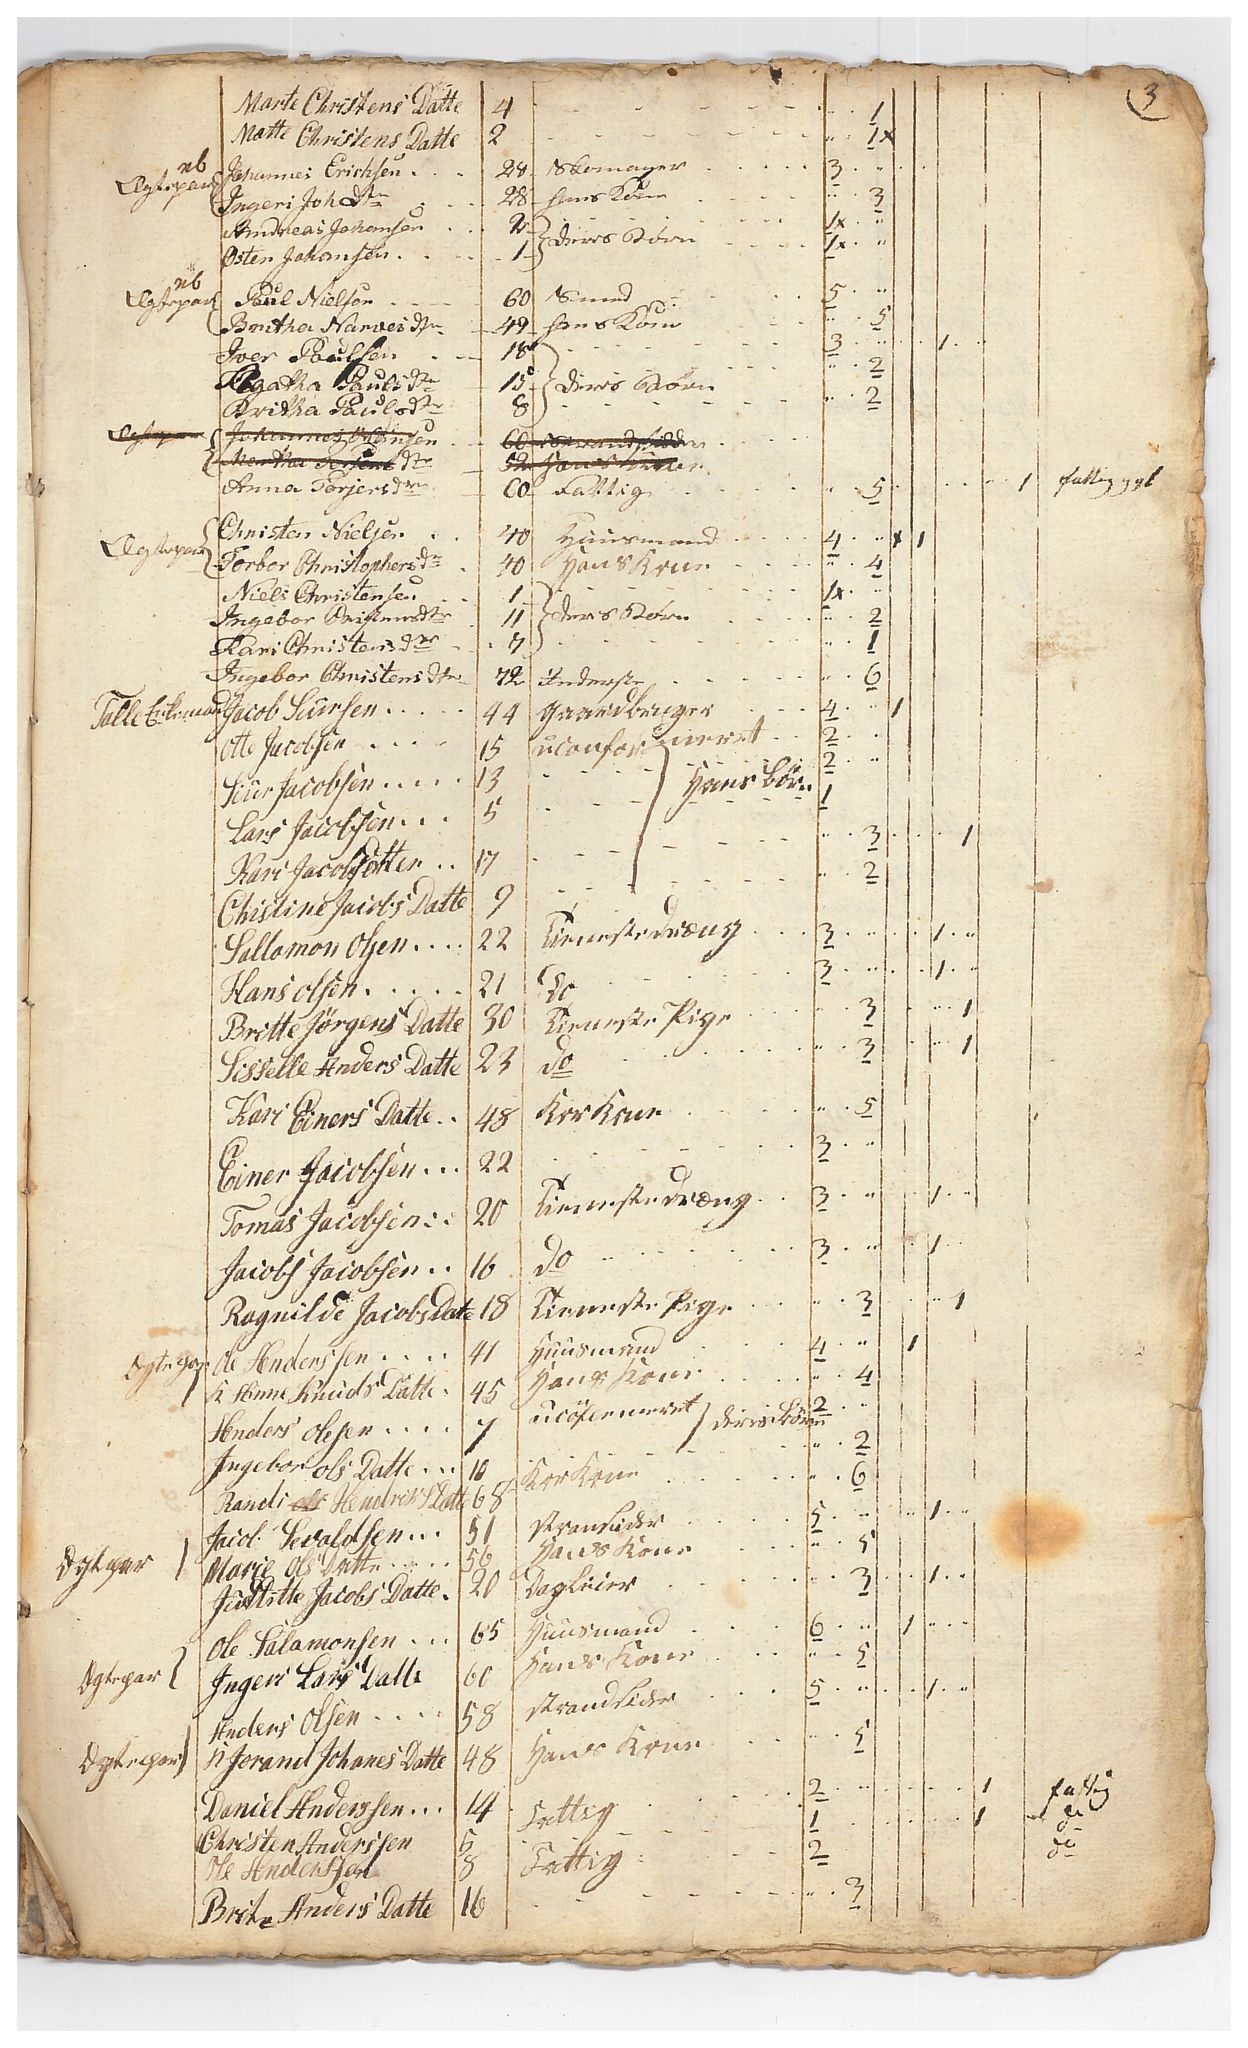 3
Marte Christens Datte 4 1
Matte Christens Datte 2 1x
nb
Ægtepar Johannes Erichsen 28 Skomager 3
Ingeri Joh Dtr 28 hans Kone 3
Andreas Johansen 2 deres Børn 1x
Osten Johansen 1 1x
nb
Ægtepar Paul Nielsen 60 Smed 5
Britha Narves dtr 49 hans Kone 5
Iver Paulsen 18 3 1
Agatha Pauls dtr 15 deres Børn 2
Britha Pauls dtr 8 2
Ægtepar Johannes 60
Martha dtr 52 Hans Kone
Anna Torjers dtr 60 Fattig 5 1 fattig
Ægtepar Christen Nielsen 40 Huusmand 4 x 1
Torbor Christophers dr 40 Hans Kone 4
Niels Christensen 1 1x
Ingebor Christens dtr 11 deres Børn 2
Kari Christens dtr 7 1
Ingebor Christens dtr 72 Inderste 6
Jacob Siursen 44 Gaardbruger 4 1
Otte Jacobsen 15 uconformeret 2
Siur Jacobsen 13 Hans Børn 2
Lars Jacobsen 5 1
Kari Jacobsdatter 17 3 1
Chistine Jacobs Datte 9 2
Sallamon Olsen 22 Tieneste Dræng 3 1
Hans olsen 21 Do 3 1
Britte Jørgens Datte 30 Tieneste Pige 3 1
Sisselle Anders Datte 23 do 3 1
Kari Einers Datte 48 Kor Kone 5
Einer Jacobsen 22 3
Tomas Jacobsen 20 Tieneste Dræng 3 1
Jacobs Jacobsen 16 do 3 1
Ragnilde Jacobs Date 18 Tieneste Pige 3 1
Ole Anderssen 41 Huusmand 4 1
K Anne Knuds Datte 45 Hans Kone 4
Anders Olesen 7 deres Børn 2
Ingebor ols Datte 10 2
Randi ols Hendriks Datte 68 Kor Kone 6
Jacob Sevaldsen 51 strandsider 5 1
Ogtpar Marie Ols Datte 56 Hans Kone 5
Jacobs Datte 20 Dagleier 3 1
Ole Salamonsen 65 Huusmand 6 1
Ogtepar Ingeri Lars Datte 60 Hans Kone 5
Anders Olsen 58 strandsider 5 1
Ogtepar K Jorand Johanes Datte 48 Hans Kone 5
Daniel Anderssen 14 Fattig 2 1 fattig
Christen Anderssen 5 1 1 do
Ole Anderssen 8 Fattig 2 do
Brite Anders Datte 16 3